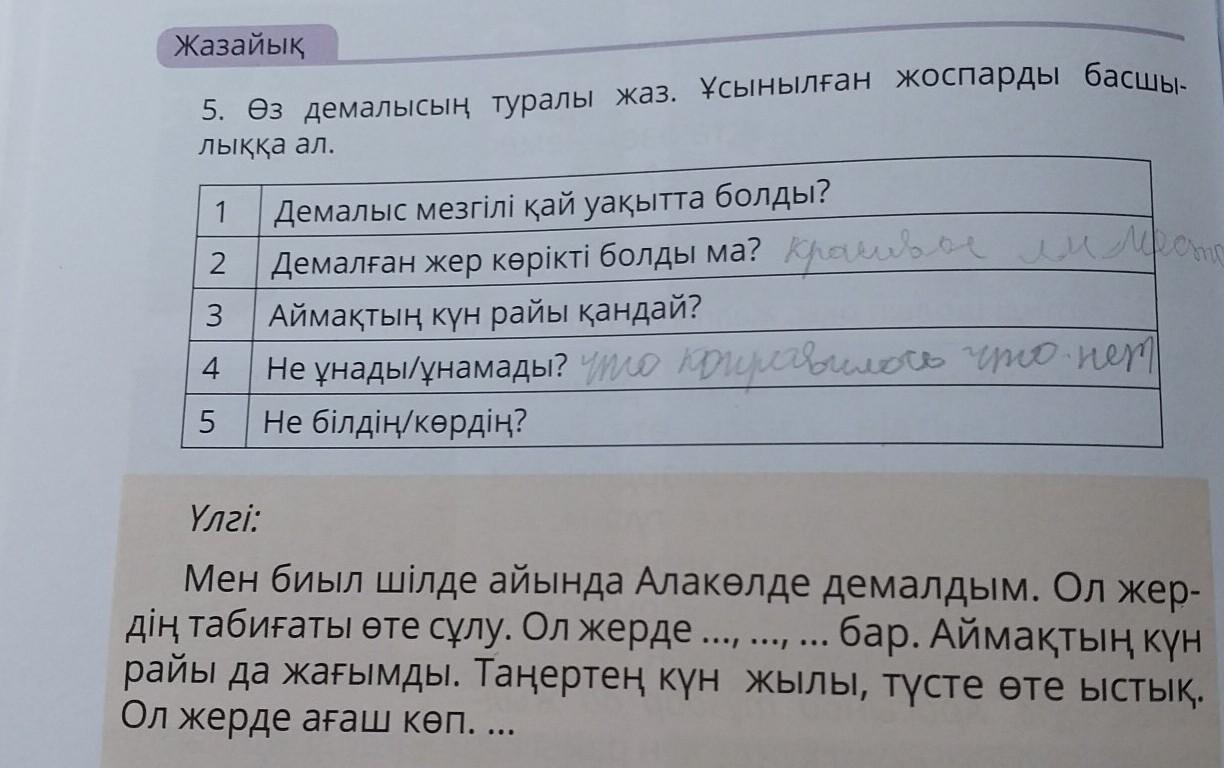 Жазайық
5. Өз демалысың туралы жаз. Ұсынылған жоспарды басшы-
лыққа ал.
1 Демалыс мезгілі қай уақытта болды?
2 Демалған жер көрікті болды ма? красивое ли место
3 Аймақтың күн райы қандай?
4 Не ұнады/ұнамады? что понравилось что нет
5 Не білдің/көрдің?
Үлгі:
Мен биыл шілде айында Алакөлде демалдым. Ол жер-
дің табиғаты өте сұлу. Ол жерде ..., ..., ... бар. Аймақтың күн
райы да жағымды. Таңертең күн жылы, түсте өте ыстық.
Ол жерде ағаш көп. ...